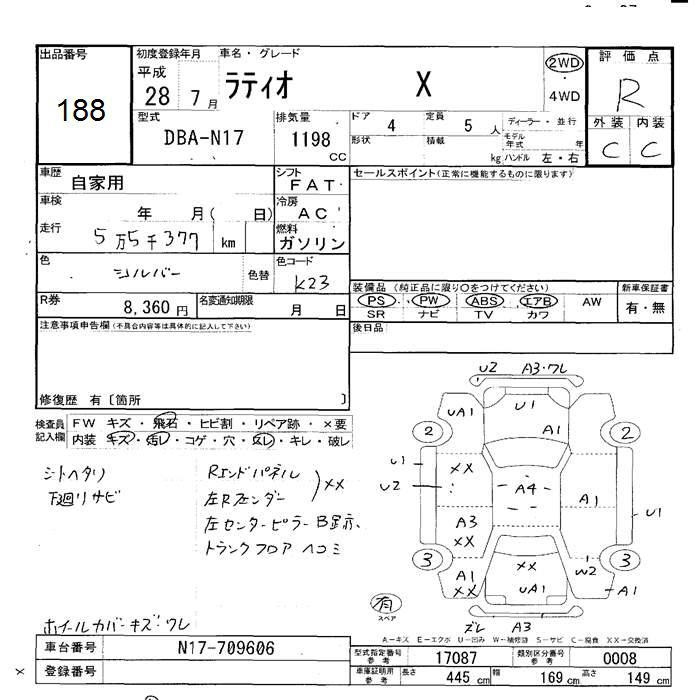 出品番号
188
初度登録年月
平成
28年 7月
車名・グレード
ラティオ X
2WD
・
4WD
評価点
R
外装 内装
C C
型式
DBA-N17
排気量
1198
CC
ドア 4
定員 5 人
形状
積載
kg
ディーラー・並行
モデル
年式 年
ハンドル 左・右
車歴
自家用
シフト
FAT
車検
年 月( 日)
冷房
AC
走行
5万5千377 km
燃料
ガソリン
色
シルバー
色替
色コード
K23
R券
8,360円
名変通知期限
月 日
セールスポイント(正常に機能するものに限ります)
装備品 (純正品に限り○をつけてください)
PS・PW・ABS・エアB・AW
SR ナビ TV カワ
新車保証書
有・無
後日品
注意事項申告欄(不具合内容等は具体的に記入して下さい)
修復歴 有〔箇所 〕
検査員
記入欄
FW キズ・飛石・ヒビ割・リペア跡・×要
内装 キズ・汚レ・コゲ・穴・スレ・キレ・破レ
シートヘタリ
下廻りサビ
Rエンドパネル
左Rフェンダー
XX
左センターピラーB
トランクフロア ヘコミ
ホイールカバーキズ ワレ
U2 A3・ワレ
UA1
U1
A1
2
2
U1
U2
XX
A4
A1
U1
A3
XX
3
3
XX
W2
A1
XX
UA1
A1
有
スペア
ズレ A3
A-キズ E-エクボ U-凹み W-補修跡 S-サビ C-腐食 XX-交換済
車台番号
N17-709606
登録番号
型式指定番号
参考
17087
類別区分番号
参考
0008
車庫証明用
参考
長さ 445 cm
幅 169 cm
高さ 149 cm
×